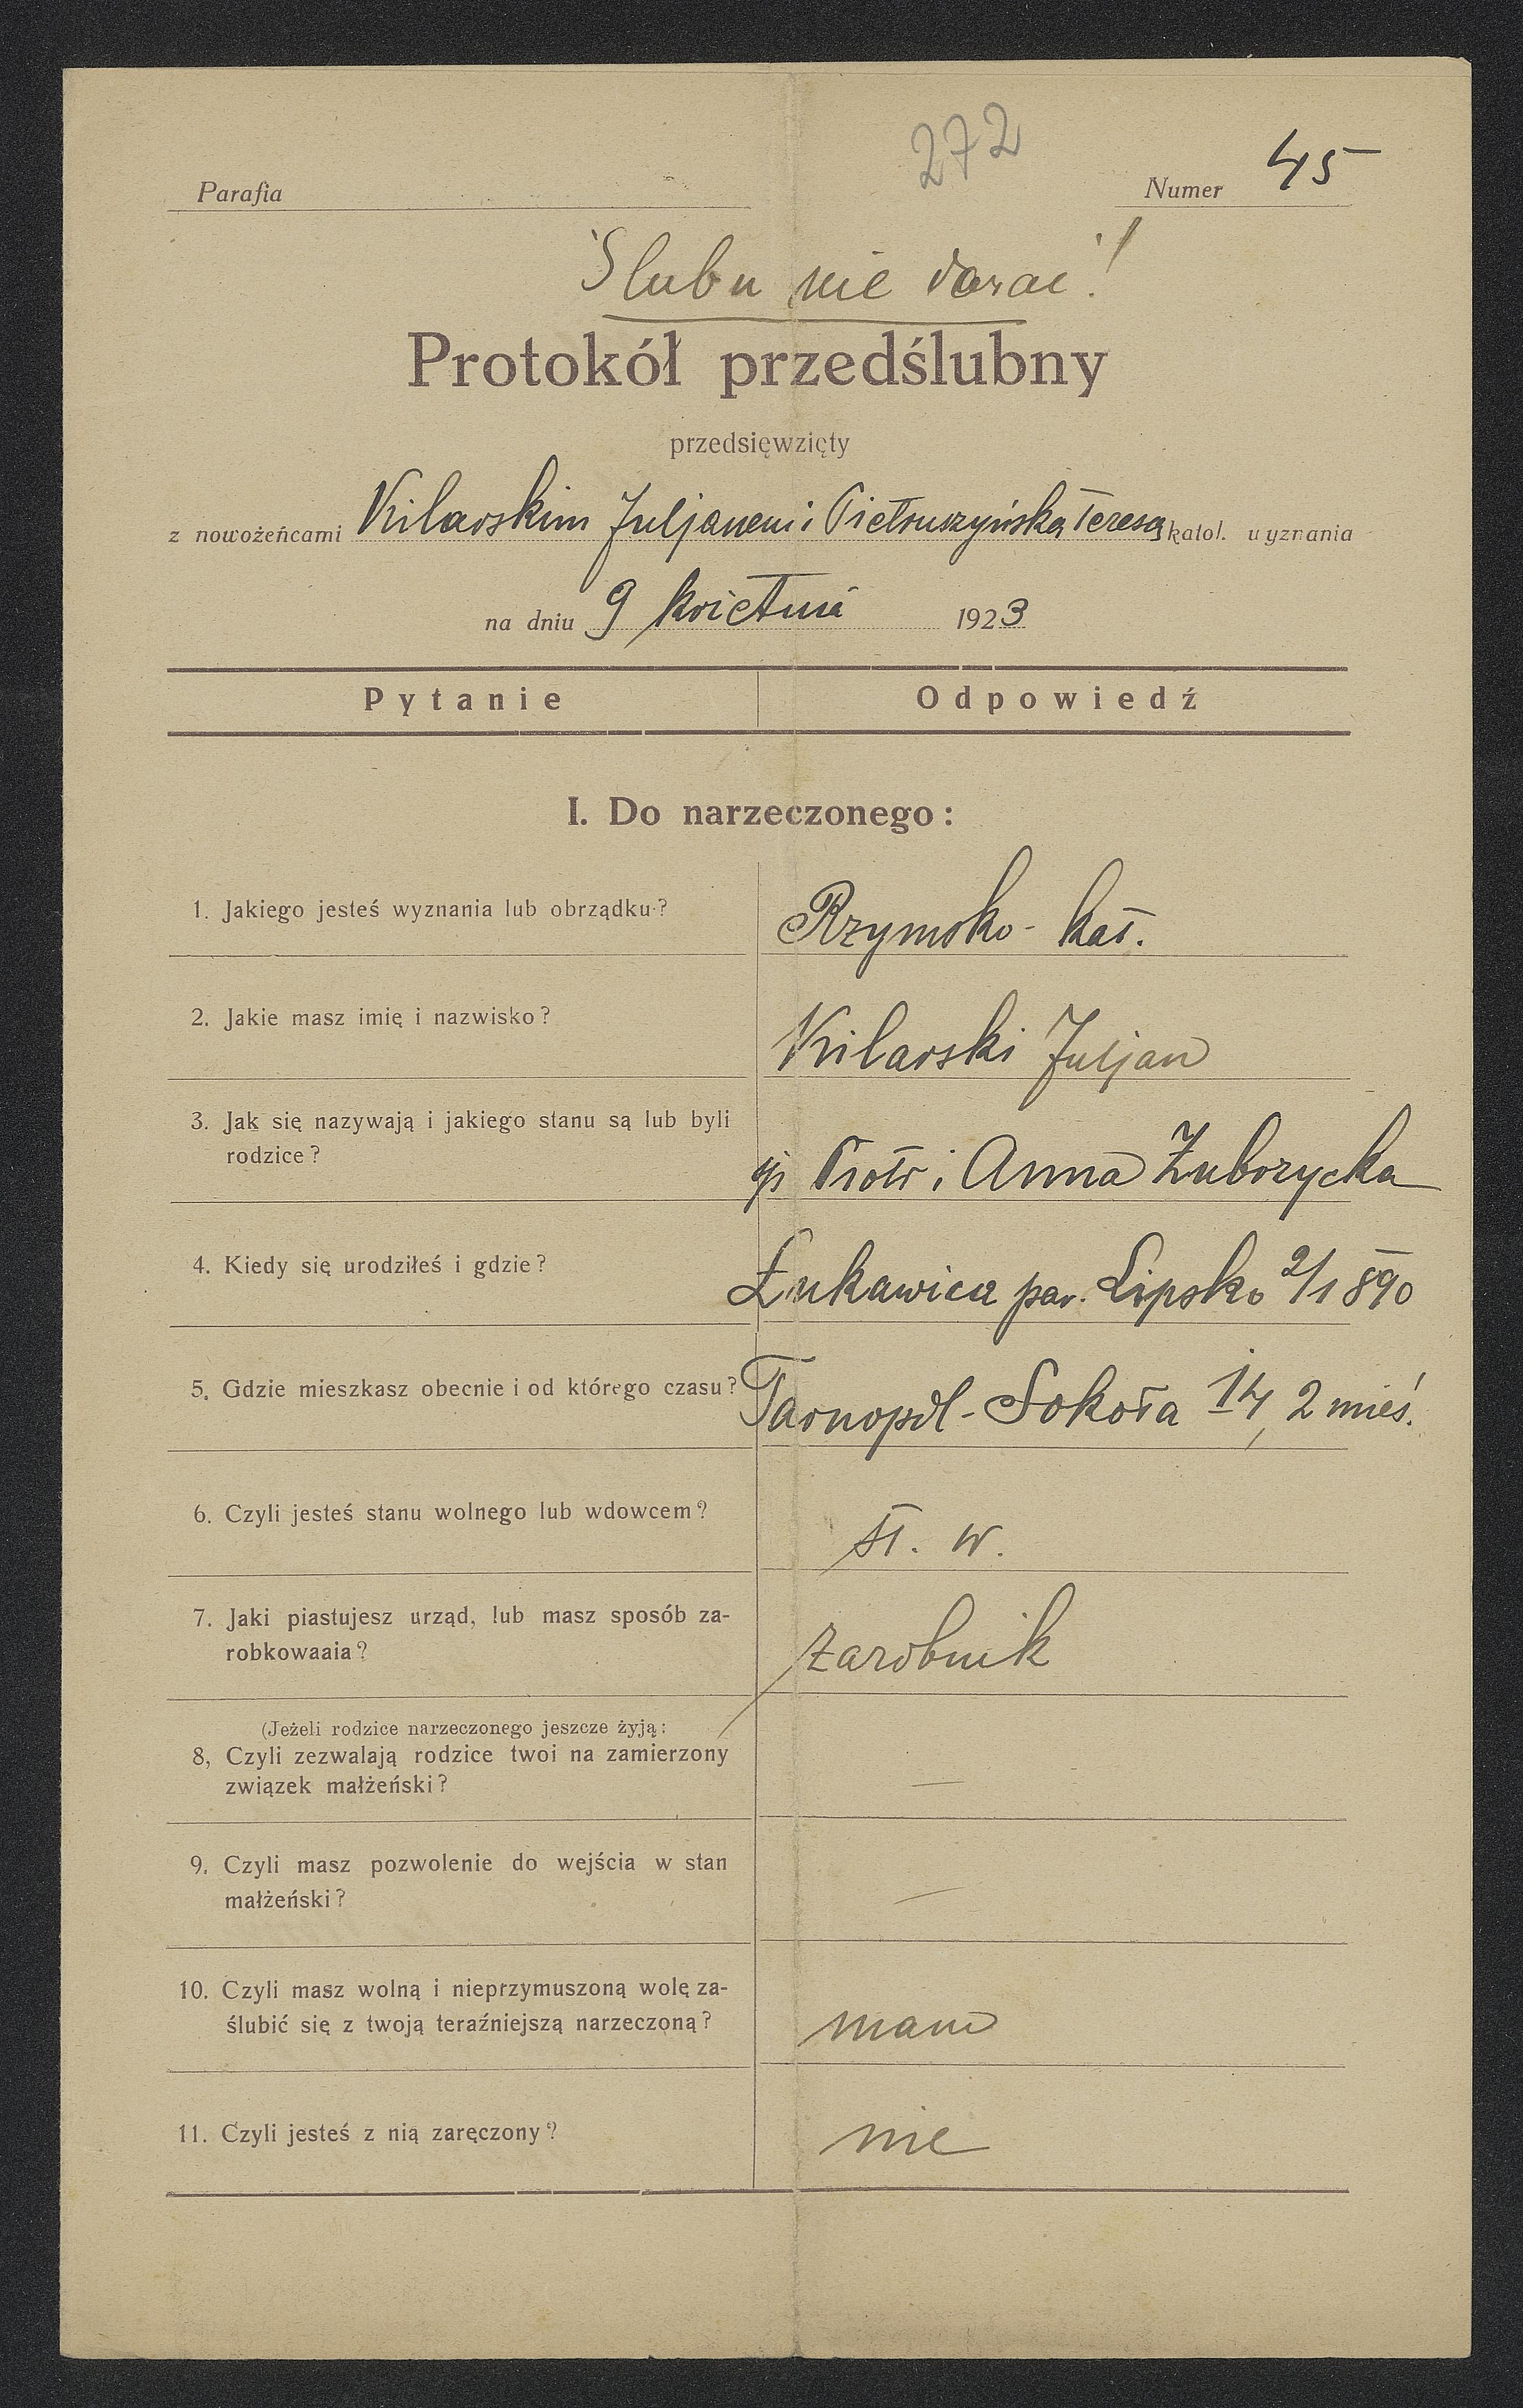 272
Parafia
Numer 45
Ślubu nie dawać!
Protokół przedślubny
przedsięwzięty
z nowożeńcami Kilarskim Juljanem i Pietruszyńską Teresą katol. wyznania
na dniu 9 kwietnia 1923
Pytanie Odpowiedź
I. Do narzeczonego:
1. Jakiego jesteś wyznania lub obrządku? Rzymsko-kat.
2. Jakie masz imię i nazwisko? Kilarski Juljan
3. Jak się nazywają i jakiego stanu są lub byli
rodzice? Piotr i Anna Zuborzycka
4. Kiedy się urodziłeś i gdzie? Łukawica par. Lipsko 2/1 890
5. Gdzie mieszkasz obecnie i od którego czasu? Tarnopol - Sokoła 14, 2 mieś.
6. Czyli jesteś stanu wolnego lub wdowcem? st. w.
7. Jaki piastujesz urząd, lub masz sposób za-
robkowaaia? zarobnik
(Jeżeli rodzice narzeczonego jeszcze żyją:
8, Czyli zezwalają rodzice twoi na zamierzony
związek małżeński? —
9. Czyli masz pozwolenie do wejścia w stan
małżeński? —
10. Czyli masz wolną i nieprzymuszoną wolę za-
ślubić się z twoją teraźniejszą narzeczoną? mam
11. Czyli jesteś z nią zaręczony? nie